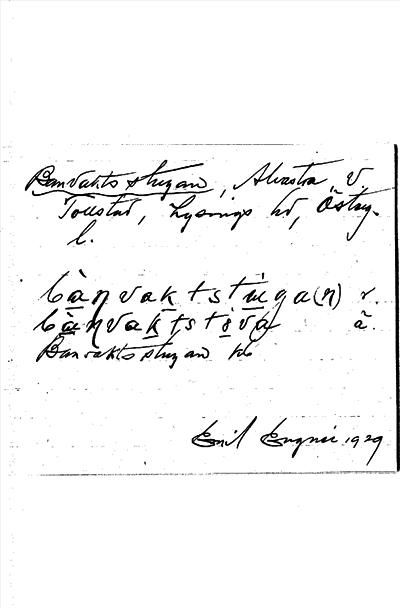 Banvaktsstugan, Alvastra, V.
Tollstad, Lysings hd, Östergö.
l.
bànvaktstuga(n) r.
bànvaktstova ä.
Banvaktsstugan
Emil 1929